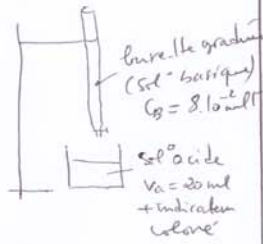 burette graduée
(sol° basique)
C_B = 8.10⁻² mol/l
sol° acide
Va = 20 ml
+ indicateur
coloré